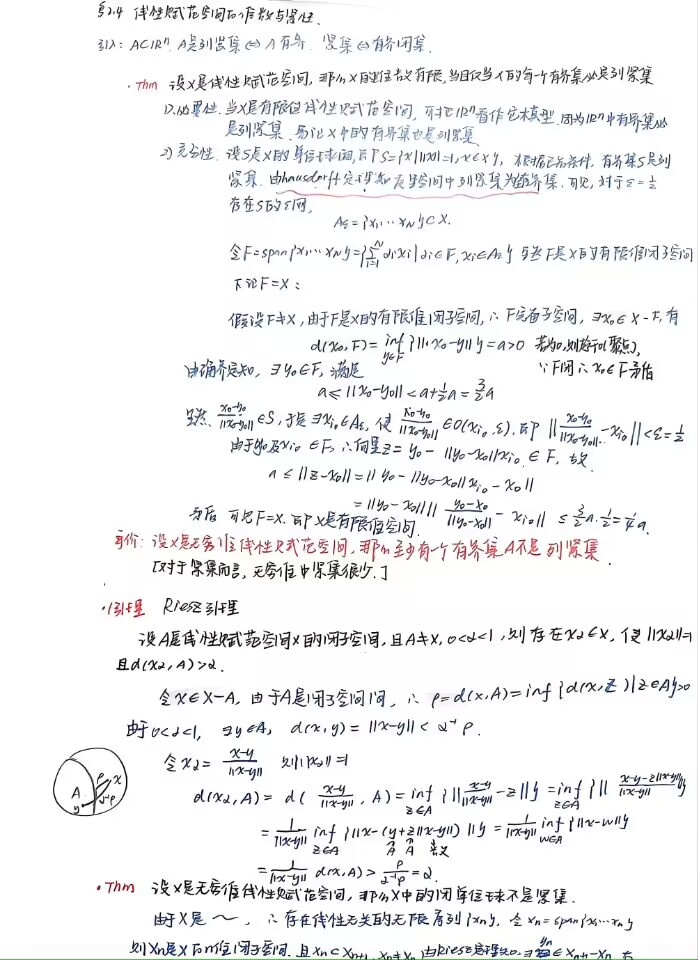 §2.4 线性赋范空间的维数与紧性.
引入: A⊂ℝⁿ, A是列紧集⇔A有界. 紧集⇔有界闭集.
·Thm 设X是线性赋范空间,那么X的维数有限,当且仅当X的每一个有界集必是列紧集
1).必要性.当X是有限维线性赋范空间,可把ℝⁿ看作它本模型.因为ℝⁿ中有界集必
是列紧集.易证X中的有界集也是列紧集
2).充分性.设S是X的单位球面,即S={x|‖x‖=1,x∈X}, 根据已知条件,有界集S是列
紧集.由hausdorff定理知度量空间中列紧集为全有界集.可见,对于ε=½
存在S的ε网,
Aε={x₁,…xN}⊂X.
令F=span{x₁,…xN}={∑ᵢ₌₁ᴺ αᵢxᵢ|αᵢ∈F,xᵢ∈Aε} 显然F是X的有限维闭子空间
下证F=X:
假设F≠X,由于F是X的有限维闭子空间,∴F完备子空间,∃x₀∈X-F,有
d(x₀,F)=inf y∈F {‖x₀-y‖}=a>0 若为0,则为聚点,
由确界定知,∃y₀∈F,满足 ∵F闭∴x₀∈F矛盾
a≤‖x₀-y₀‖<a+½a=3/2a
显然 (x₀-y₀)/‖x₀-y₀‖∈S,于是∃xᵢ₀∈Aε,使 (x₀-y₀)/‖x₀-y₀‖∈O(xᵢ₀,ε),即‖(x₀-y₀)/‖x₀-y₀‖-xᵢ₀‖<ε=½
由于y₀及xᵢ₀∈F,∴向量z=y₀-‖y₀-x₀‖xᵢ₀∈F,故
a≤‖z-x₀‖=‖y₀-‖y₀-x₀‖xᵢ₀-x₀‖
=‖y₀-x₀‖‖(y₀-x₀)/‖y₀-x₀‖-xᵢ₀‖≤3/2a·½=¾a.
矛盾 可见F=X.即X是有限维空间.
等价:设X是无穷维线性赋范空间,那么至少有一个有界集A不是列紧集.
[对于紧集而言,无穷维中紧集很少.]
·引理 Riesz引理
设A是线性赋范空间X的闭子空间,且A≠X,0<α<1,则存在xα∈X,使‖xα‖=1
且d(xα,A)>α.
令x∈X-A,由于A是闭子空间,∴ρ=d(x,A)=inf{d(x,z)|z∈A}>0
由于0<α<1,∃y∈A,d(x,y)=‖x-y‖<α⁻¹ρ.
令xα=(x-y)/‖x-y‖ 则‖xα‖=1
A ρ x y α⁻¹ρ
d(xα,A)=d((x-y)/‖x-y‖,A)=inf z∈A {‖(x-y)/‖x-y‖-z‖}=inf z∈A {‖(x-y-z‖x-y‖)/‖x-y‖‖}
=1/‖x-y‖ inf z∈A {‖x-(y+z‖x-y‖)‖}=1/‖x-y‖ inf w∈A {‖x-w‖}
=1/‖x-y‖ d(x,A)>ρ/(α⁻¹ρ)=α.
·Thm 设X是无穷维线性赋范空间,那么X中的闭单位球不是紧集.
由于X是~,∴存在线性无关的无限序列{xn},令Xn=span{x₁…xn}
则Xn是X的n维闭子空间,且Xn⊂Xn+1,Xn≠Xn+1,由Riesz定理知,∃yn∈Xn+1-Xn,有